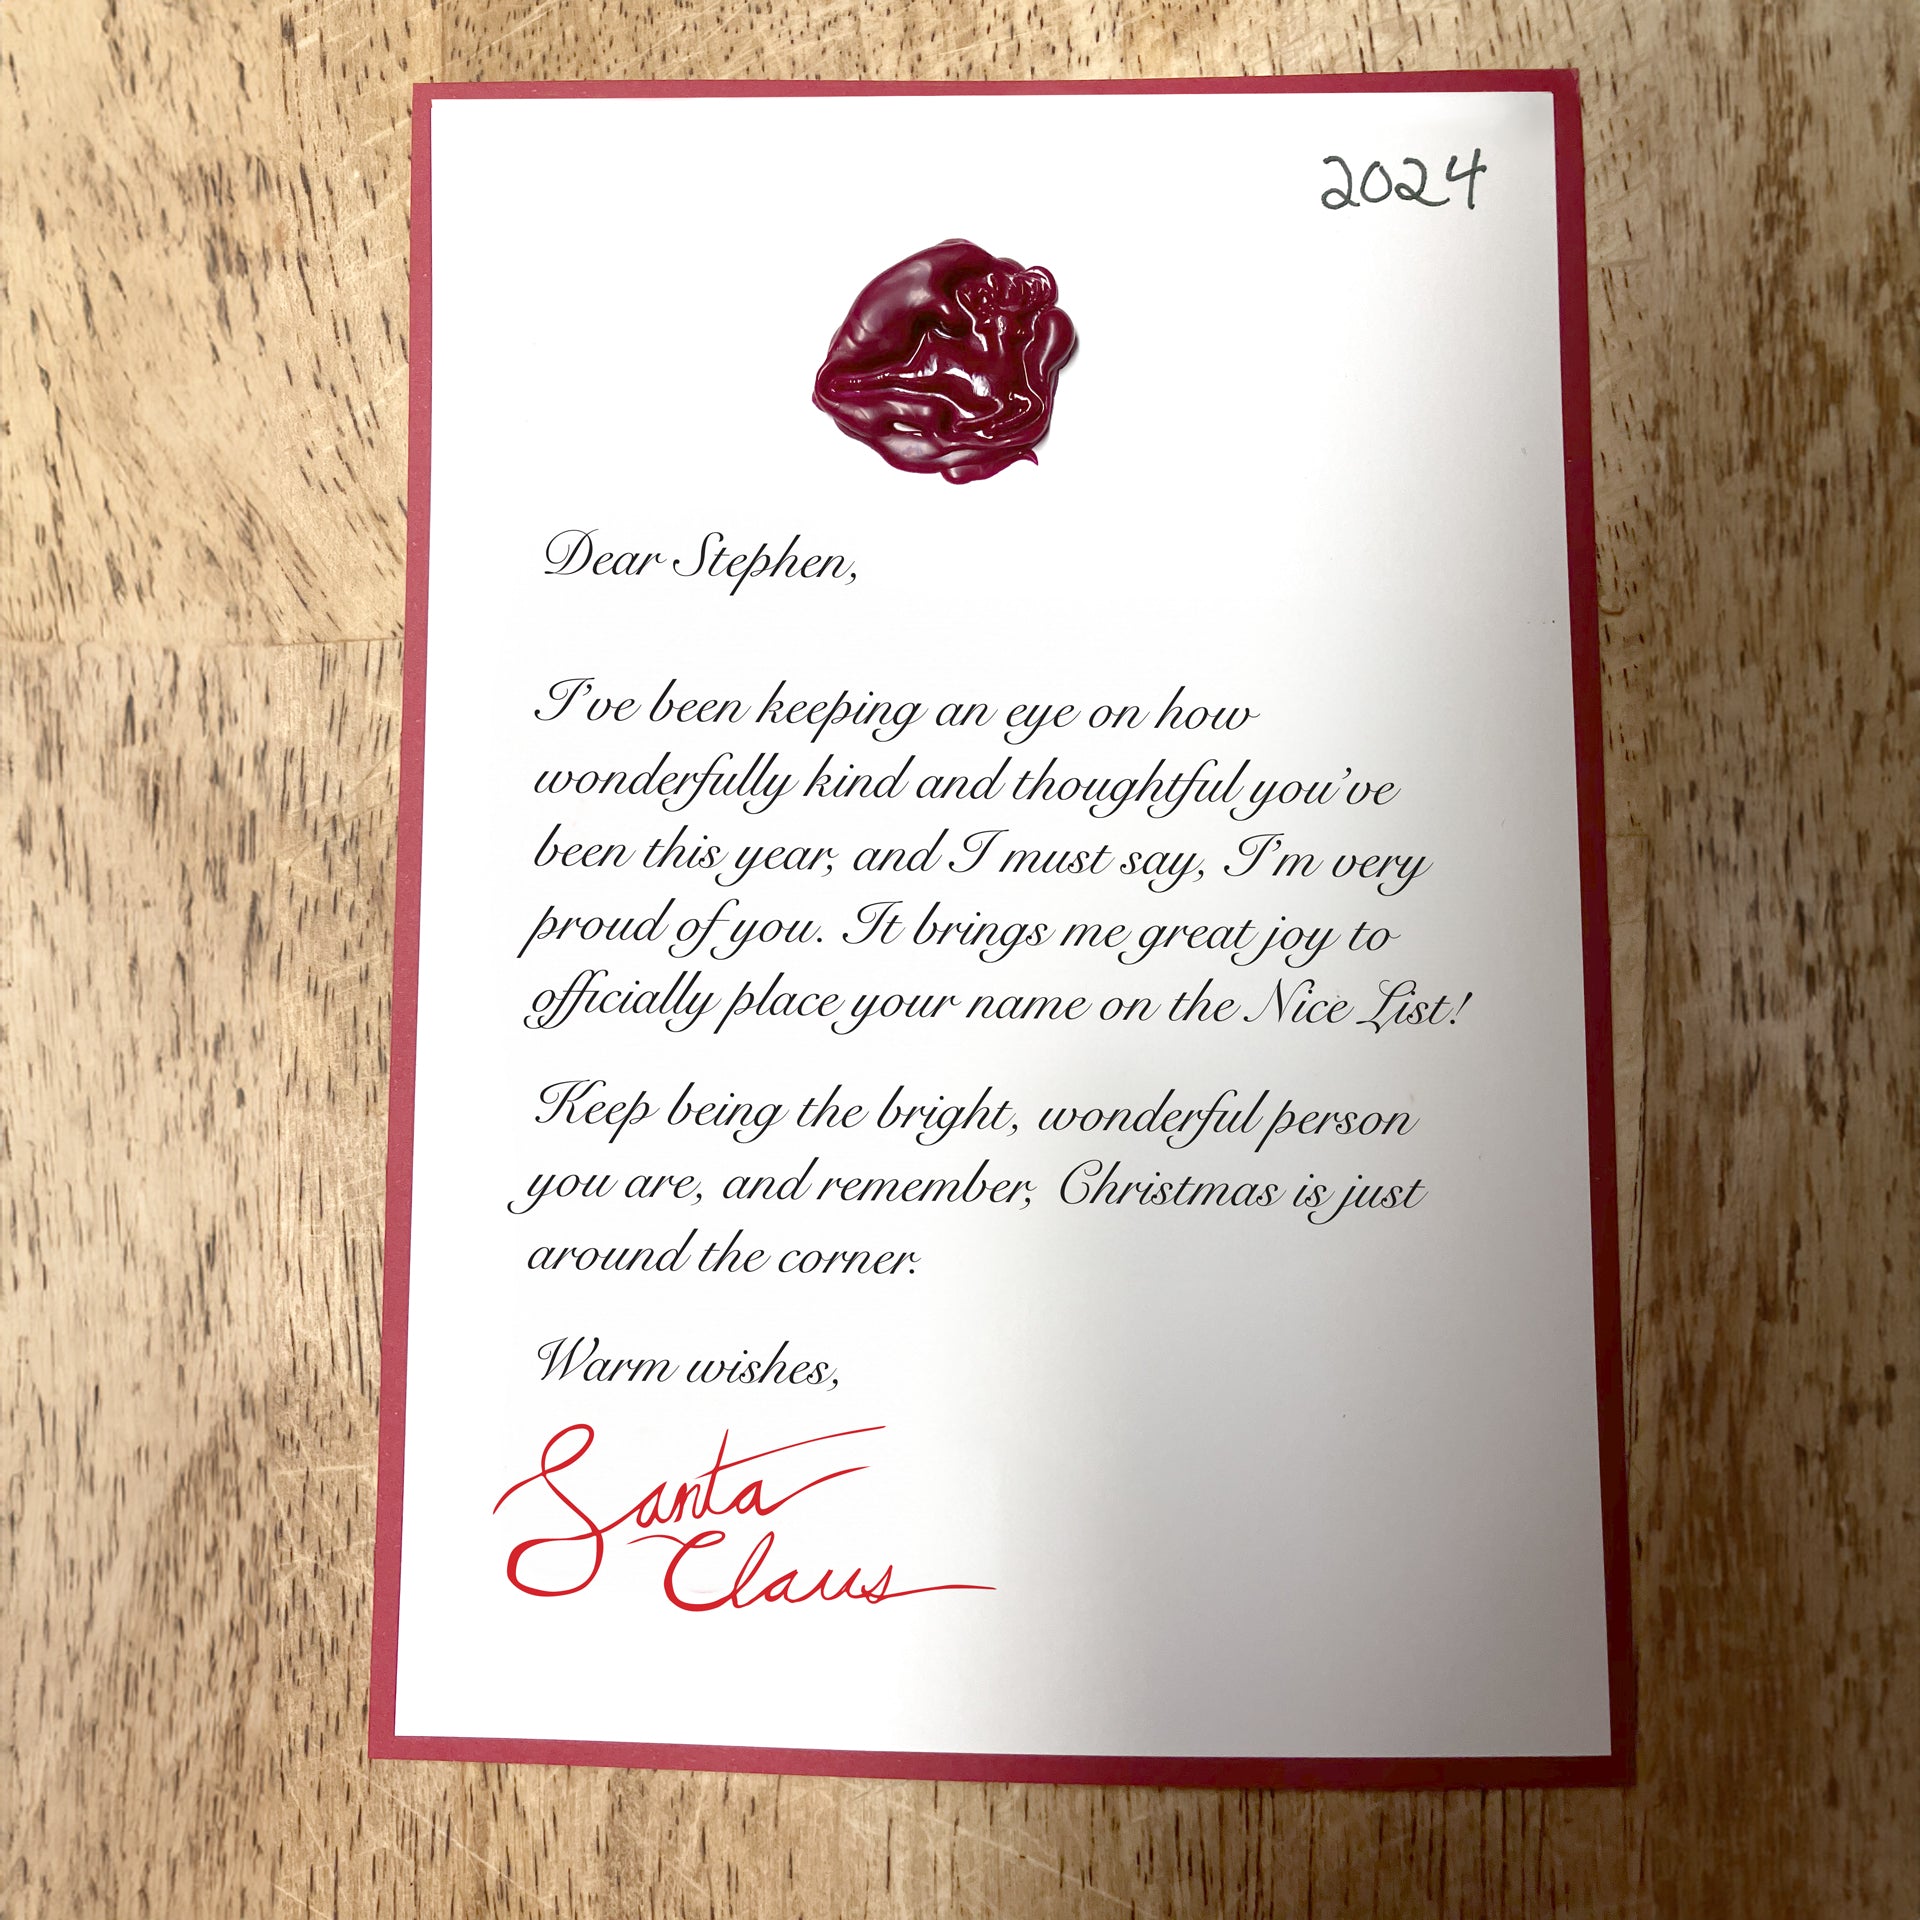 2024
Dear Stephen,
I've been keeping an eye on how
wonderfully kind and thoughtful you've
been this year, and I must say, I'm very
proud of you. It brings me great joy to
officially place your name on the Nice List!
Keep being the bright, wonderful person
you are, and remember, Christmas is just
around the corner.
Warm wishes,
Santa
Claus